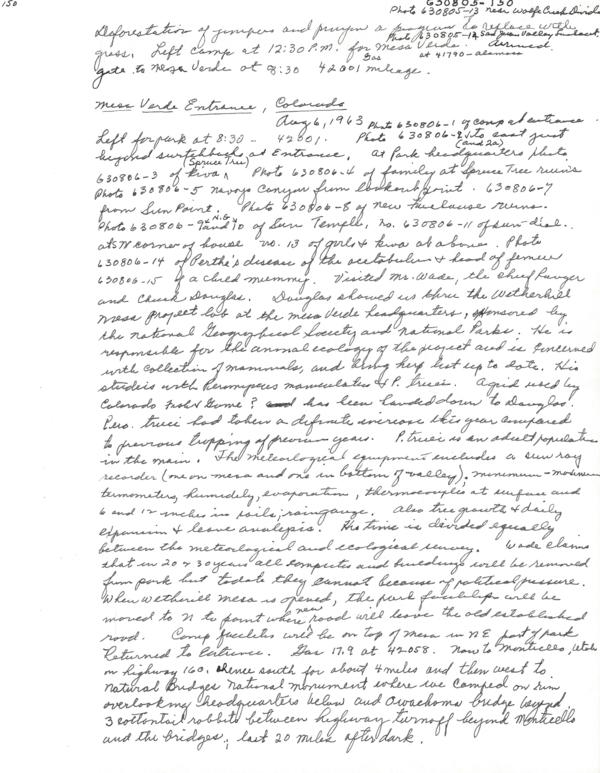 150
630805-150
Photo 630805-13 near Wolfe Creek Divide
Deforestation of junipers and pinyon a program to replace with
Photo 630805-12 San Juan Valley
grass. Left camp at 12:30 P.M. for Mesa Verde. Arrived
Gas at 41790 - alamosa
gate to Mesa Verde at 8:30 42001 mileage.
Mesa Verde Entrance, Colorado
Aug 6, 1963 Photo 630806-1 of camp at entrance.
Left for park at 8:30 - 42001. Photo 630806-2 to east just
(and 2a)
beyond switchback at Entrance. At Park headquarters photo
(Spruce Tree)
630806-3 of kiva, Photo 630806-4 of family at Spruce Tree ruins
Photo 630806-5 Navajo Canyon from lookout point. 630806-7
from Sun Point. Photo 630806-8 of new fire house ruins.
Photo 630806-9 and 10 of Sun Temple, no. 630806-11 of sun-dial
at SW corner of house no. 13 of girls & kiva as above. Photo
630806-14 of Perthe's disease of the acetabulum & head of femur
630806-15 of a child mummy. Visited Mr. Wade, the Chief Ranger
and Chuck Douglas. Douglas showed us thru the Wetherhill
Mesa project lab at the Mesa Verde headquarters, sponsored by
the National Geographical Society and National Parks. He is
responsible for the animal ecology of the project and is concerned
with collection of mammals, and bring herp list up to date. His
studies with Peromyscus maniculatus & P. truei. A grid used by
Colorado Fish & Game? has been handed down to Douglas.
Pero. truei had taken a definite increase this year compared
to previous trapping of previous years. P. truei is an adult population
in the main. The meteorlogical equipment includes a sun ray
recorder (one on mesa and one in bottom of valley), minimum-maximum
termometers, humidity, evaporation, thermocouples at surface and
6 and 12 inches in soils; raingauge. Also tree growth & daily
expansion & leave analysis. His time is divided equally
between the meteorlogical and ecological survey. Wade claims
that in 20 & 30 years all campsites and buildings will be removed
from park but todate they cannot because of political pressure.
When Wetherill Mesa is opened, the park facilities will be
moved to N to point where new road will leave the old established
road. Camp facilities will be on top of mesa in NE part of park
Returned to Entrance. Gas 17.9 at 42058. Now to Monticello, Utah
on highway 160. Thence south for about 4 miles and then west to
Natural Bridges National Monument where we camped on rim
overlooking headquarters below and Owachomo bridge beyond.
3 cottontail rabbits between highway turnoff beyond Monticello
and the bridges; last 20 miles after dark.